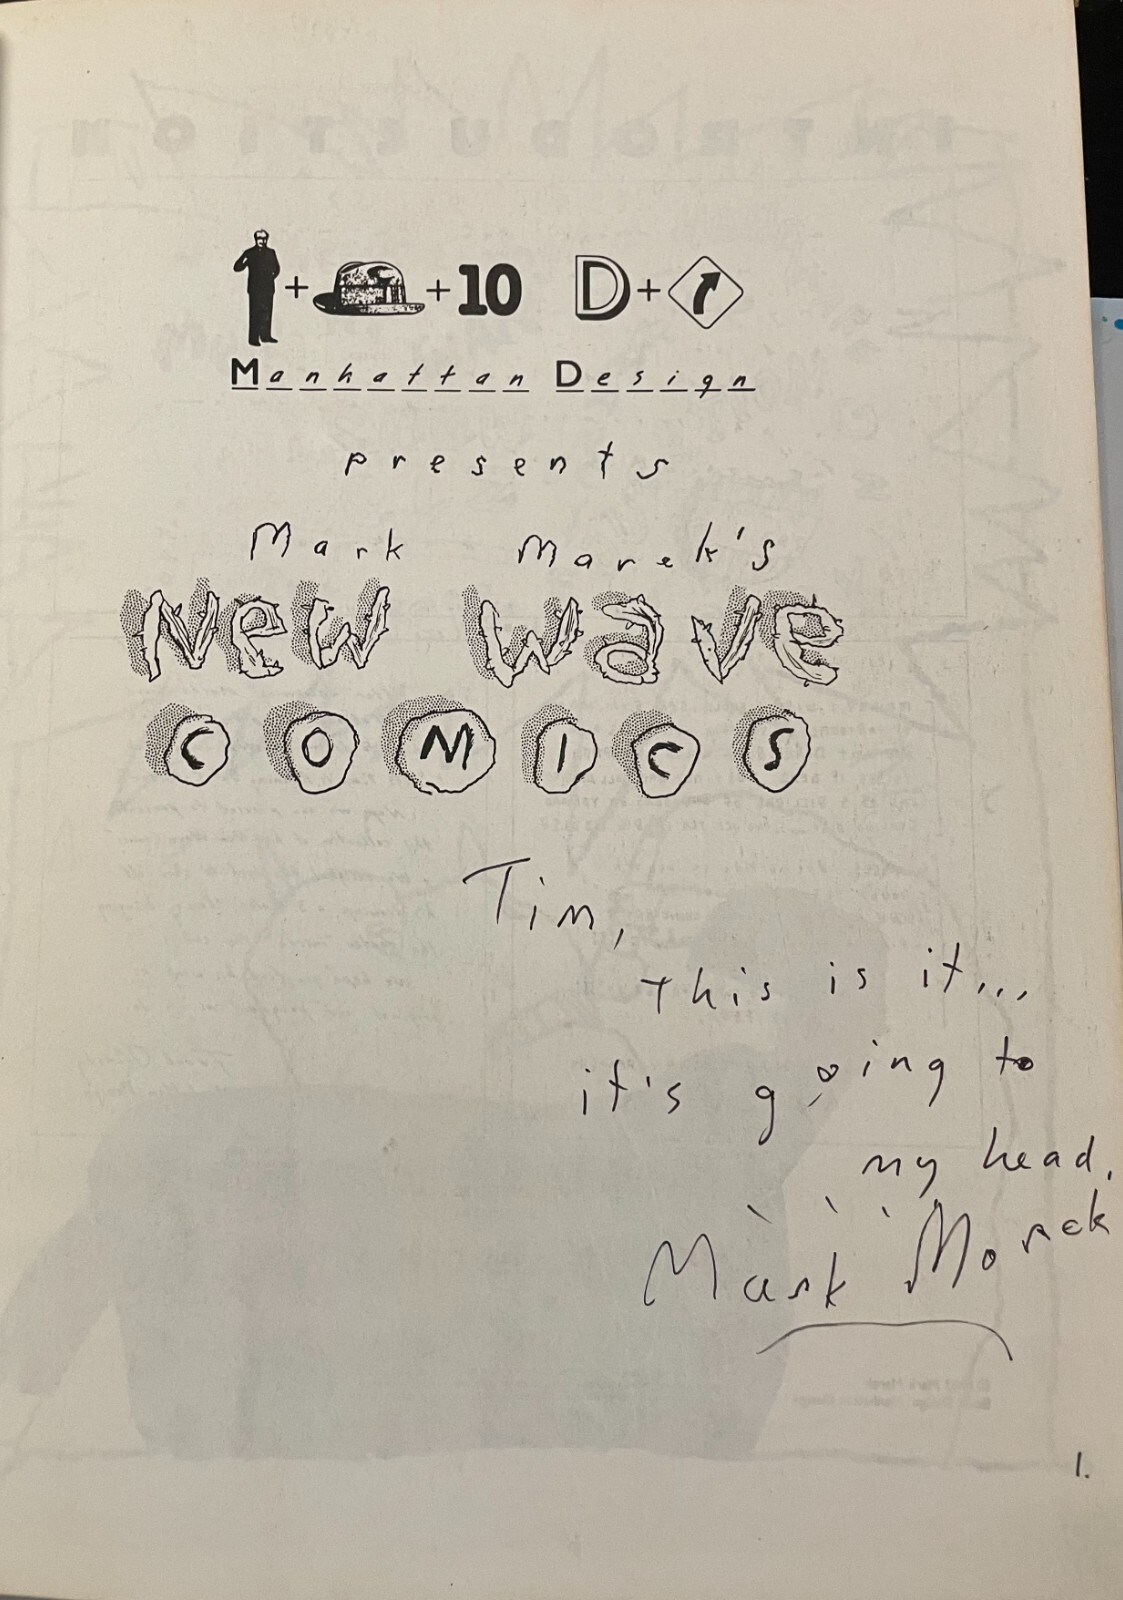 + + 10 D +
Manhattan Design
presents
Mark Marek's
New Wave
COMICS
Tim,
this is it...
it's going to
my head.
Mark Marek
1.
INTRODUCTION